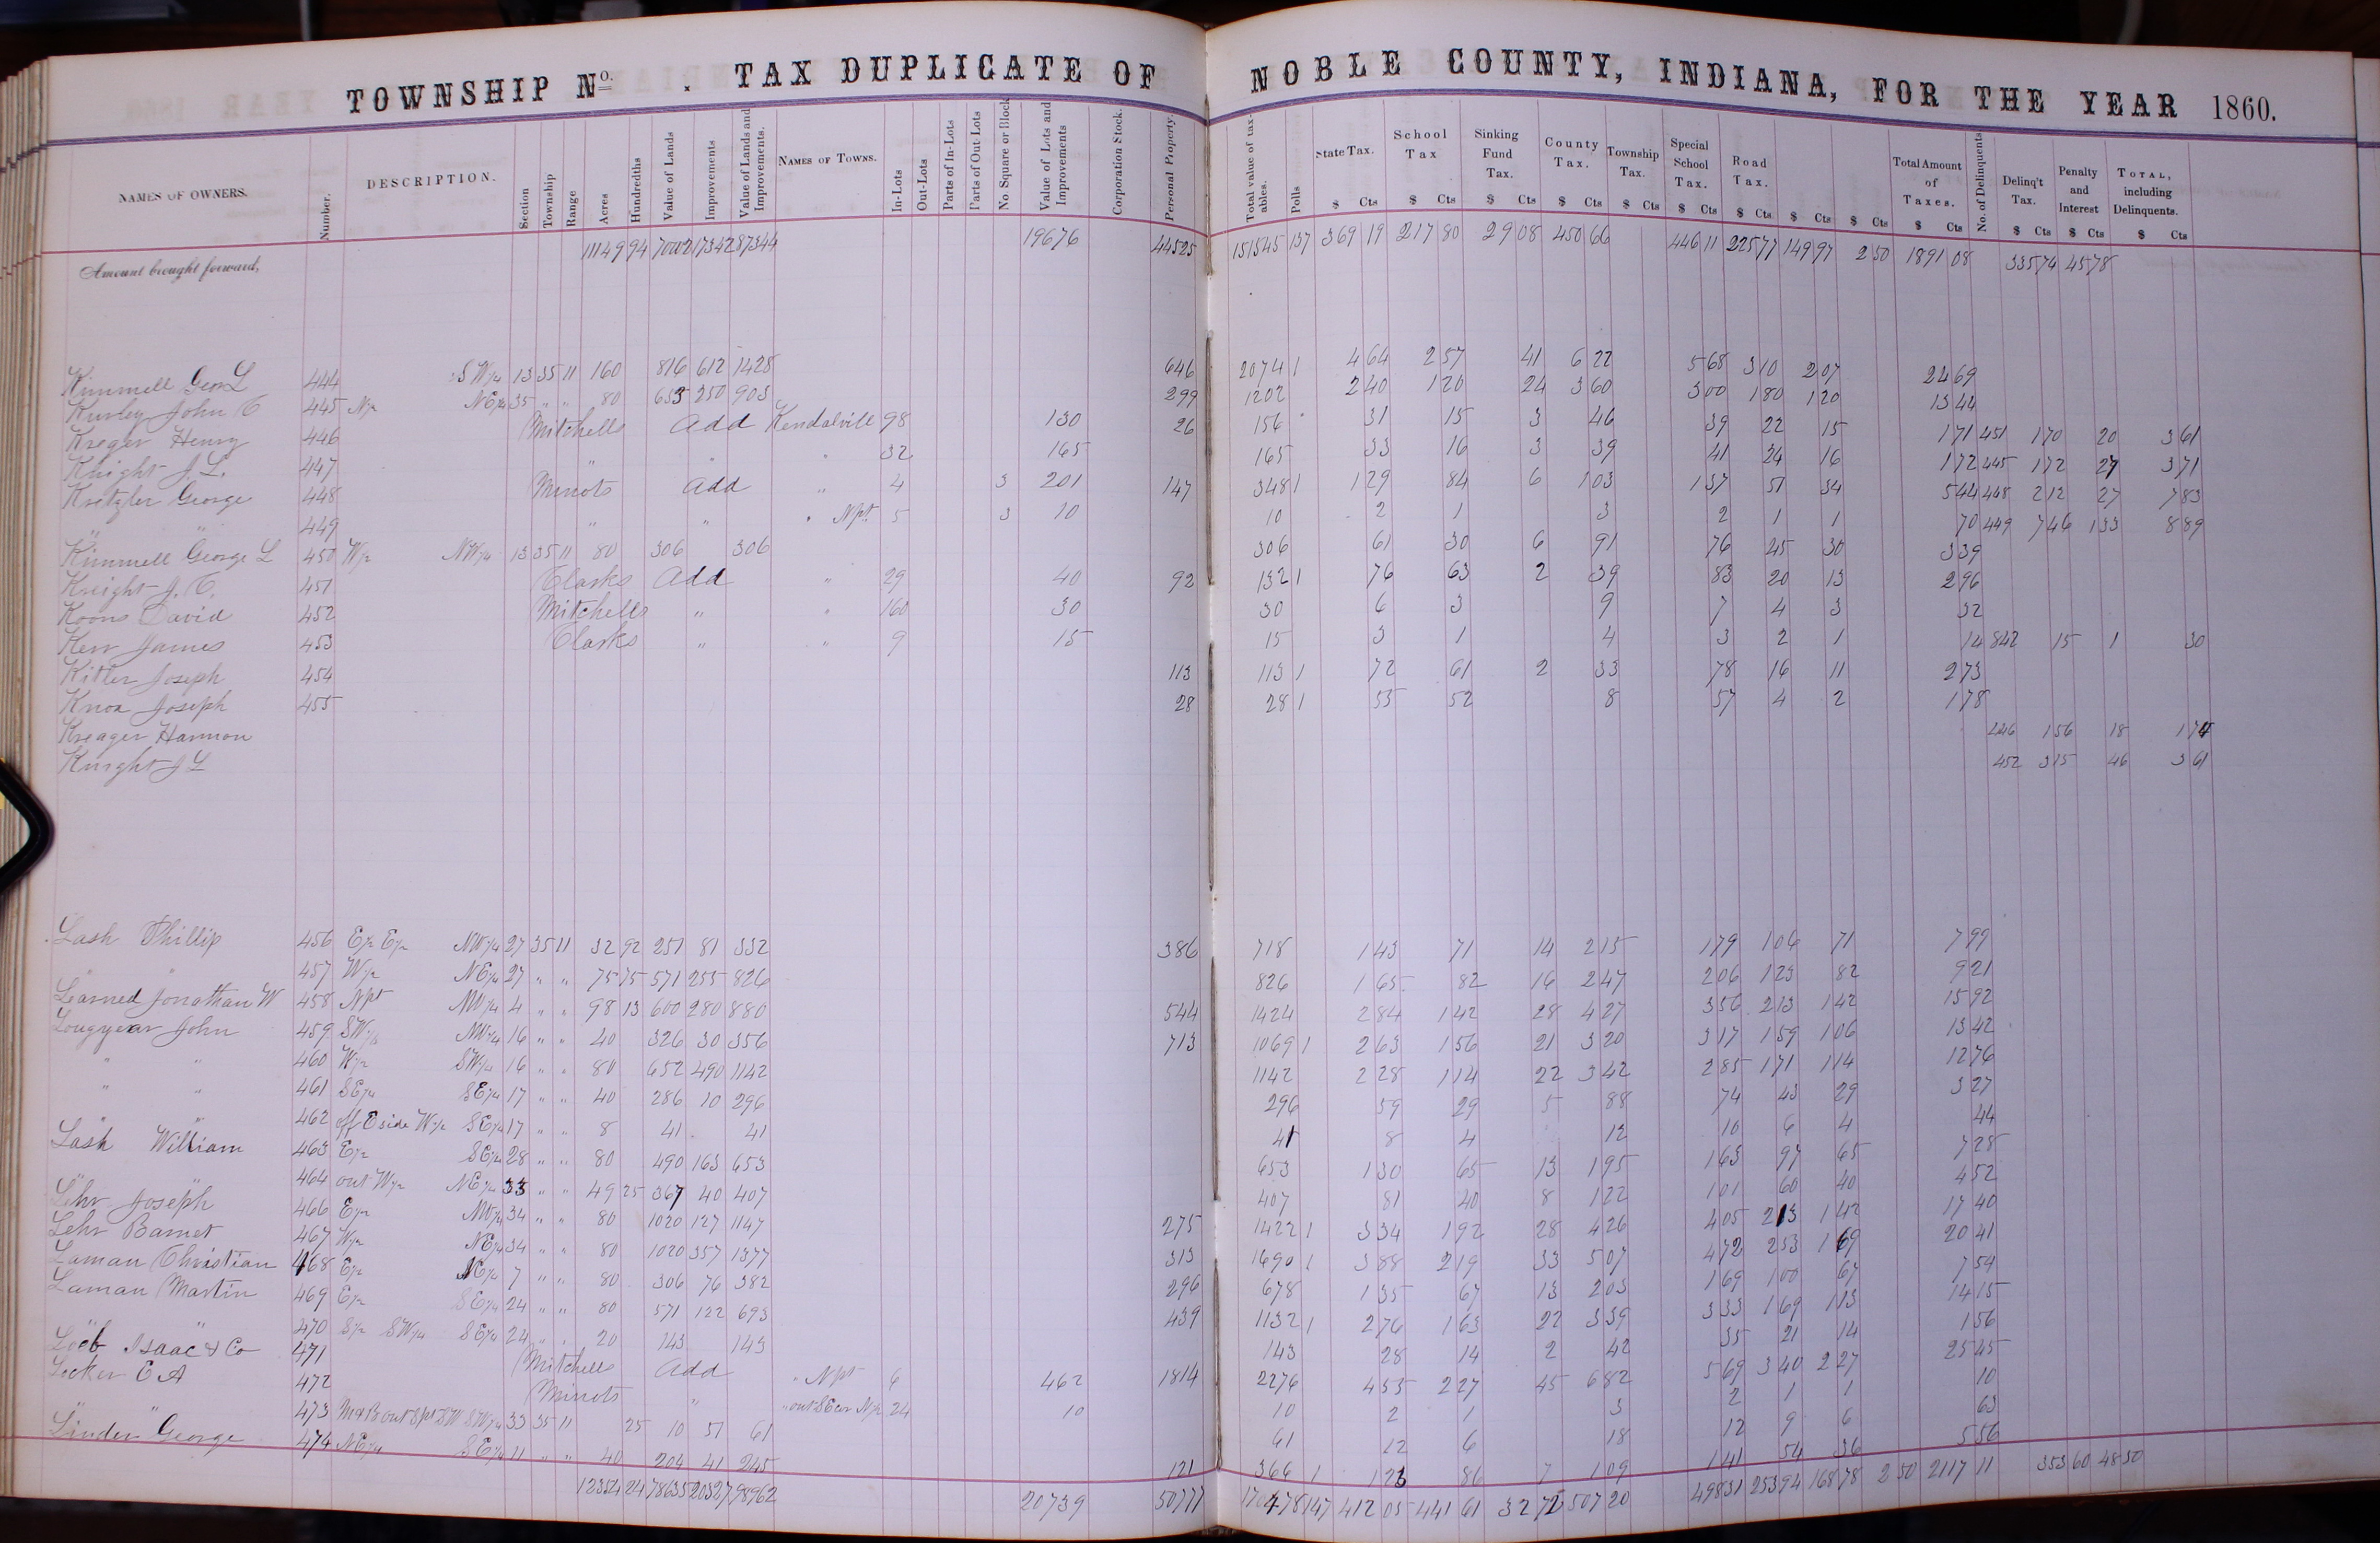 TOWNSHIP No. . TAX DUPLICATE OF NOBLE COUNTY, INDIANA, FOR THE YEAR 1860.
NAMES OF OWNERS. Number. DESCRIPTION. Section Township Range Acres Hundredths Value of Lands Improvements Value of Lands and Improvements. NAMES OF TOWNS. In-Lots Out-Lots Parts of In-Lots Parts of Out-Lots No Square or Block Value of Lots and Improvements Corporation Stock. Personal Property. Total value of taxables. Polls State Tax. School Tax Sinking Fund Tax. County Tax. Township Tax. Special School Tax. Road Tax. Total Amount of Taxes. No. of Delinquents Delinq't Tax. Penalty and Interest TOTAL, including Delinquents.
$ Cts $ Cts $ Cts $ Cts $ Cts $ Cts $ Cts $ Cts $ Cts $ Cts $ Cts $ Cts $ Cts
Amount brought forward, 11149 94 70002 17342 87344 19676 44525 151545 137 369 19 217 80 29 08 450 66 446 11 225 77 149 97 2 50 1891 08 335 74 45 78
Kimmell Geo L 444 SW/4 13 35 11 160 816 612 1428 646 2074 1 4 64 2 57 41 6 22 5 68 3 10 2 07 24 69
Kurley John C 445 N/2 NE/4 35 " " 80 653 250 903 299 1202 2 40 1 20 24 3 60 3 00 1 80 1 20 13 44
Kreger Henry 446 Mitchells Add Kendalvill 98 130 26 156 31 15 3 46 39 22 15 1 71 451 1 70 20 3 61
Knight J L. 447 " " " 32 165 165 33 16 3 39 41 24 16 1 72 445 1 72 27 3 71
Kretzler George 448 Minots Add " 4 3 201 147 348 1 1 29 84 6 1 03 1 37 51 34 5 44 448 2 12 27 7 83
" " 449 " " " Npt 5 3 10 10 2 1 3 2 1 1 70 449 7 46 1 33 8 89
Kimmell George L 450 W/2 NW/4 13 35 11 80 306 306 306 61 30 6 91 76 45 30 3 39
Knight J. C. 451 Clarks Add " 29 40 92 132 1 76 63 2 39 83 20 13 2 96
Koons David 452 Mitchells " " 160 30 30 6 3 9 7 4 3 32
Kerr James 453 Clarks " " 9 15 15 3 1 4 3 2 1 14 842 15 1 30
Kitler Joseph 454 113 113 1 72 61 2 33 78 16 11 2 73
Knox Joseph 455 28 28 1 55 52 8 57 4 2 1 78
Kreager Harmon 446 1 56 18 1 74
Knight J L 452 3 15 46 3 61
Lash Phillip 456 E/2 E/2 NW/4 27 35 11 32 92 251 81 332 386 718 1 43 71 14 2 15 1 79 1 06 71 7 99
" " 457 W/2 NE/4 27 " " 75 75 571 255 826 826 1 65 82 16 2 47 2 06 1 23 82 9 21
Larned Jonathan W 458 Npt NW/4 4 " " 98 13 600 280 880 544 1424 2 84 1 42 28 4 27 3 56 2 13 1 42 15 92
Longyear John 459 SW/4 NW/4 16 " " 40 326 30 356 713 1069 1 2 63 1 56 21 3 20 3 17 1 59 1 06 13 42
" " 460 W/2 SW/4 16 " " 80 652 490 1142 1142 2 28 1 14 22 3 42 2 85 1 71 1 14 12 76
" " 461 SE/4 SE/4 17 " " 40 286 10 296 296 59 29 5 88 74 43 29 3 27
" " 462 off E side W/2 SE/4 17 " " 8 41 41 41 8 4 12 10 6 4 44
Lash William 463 E/2 SE/4 28 " " 80 490 163 653 653 1 30 65 13 1 95 1 63 97 65 7 28
" " 464 out W/2 NE/4 33 " " 49 25 367 40 407 407 81 40 8 1 22 1 01 60 40 4 52
Lehr Joseph 466 E/2 NW/4 34 " " 80 1020 127 1147 275 1422 1 3 34 1 92 28 4 26 4 05 2 13 1 42 17 40
Lehr Barnet 467 W/2 NE/4 34 " " 80 1020 357 1377 313 1690 1 3 88 2 19 33 5 07 4 72 2 53 1 69 20 41
Laman Christian 468 E/2 NE/4 7 " " 80 306 76 382 296 678 1 35 67 13 2 03 1 69 1 00 67 7 54
Laman Martin 469 E/2 SE/4 24 " " 80 571 122 693 439 1132 1 2 76 1 63 22 3 39 3 33 1 69 1 13 14 15
" " 470 S/2 SW/4 SE/4 24 " " 20 143 143 143 28 14 2 42 35 21 14 1 56
Loeb Isaac & Co 471 Mitchells Add " Npt 6 462 1814 2276 4 55 2 27 45 6 82 5 69 3 40 2 27 25 45
Locker E A 472 Minots " " out SE cor N/2 24 10 10 2 1 3 2 1 1 10
" " 473 M&B out Spt SW SW/4 33 35 11 25 10 51 61 61 12 6 18 12 9 6 63
Linder George 474 NE/4 SE/4 11 " " 40 204 41 245 121 366 1 1 23 86 7 1 09 1 41 54 36 5 56
12354 24 78635 20327 98962 20739 50777 170478 147 412 05 441 61 32 72 507 20 498 31 253 94 168 78 2 50 2117 11 353 60 48 50